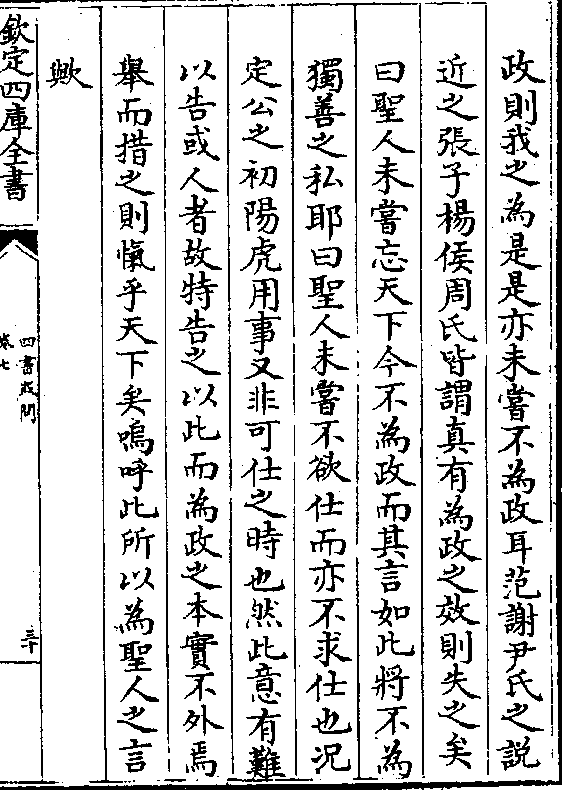 政則我之為是是亦未嘗不為政耳范謝尹氏之説
近之張子楊侯周氏皆謂真有為政之效則失之矣
曰聖人未嘗忘天下今不為政而其言如此將不為
獨善之私耶曰聖人未嘗不欲仕而亦不求仕也况
定公之初陽虎用事又非可仕之時也然此意有難
以告或人者故特告之以此而為政之本實不外焉
舉而措之則愾乎天下矣嗚呼此所以為聖人之言
歟
欽定四庫全書
四書或問
卷七
三十